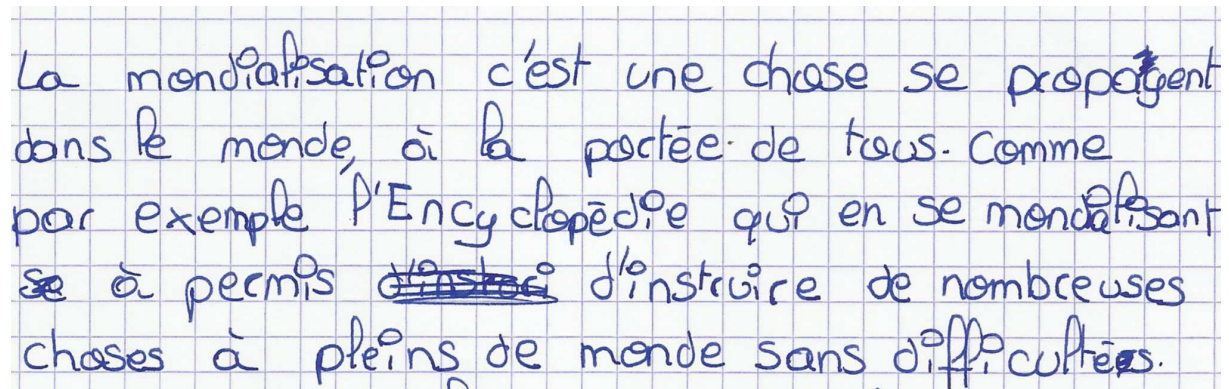 La mondialisation c'est une chose se propagent
dans le monde, à la portée de tous. Comme
par exemple l'Encyclopédie qui en se mondalisant
à permis d'instruire de nombreuses
choses à pleins de monde sans difficultées.